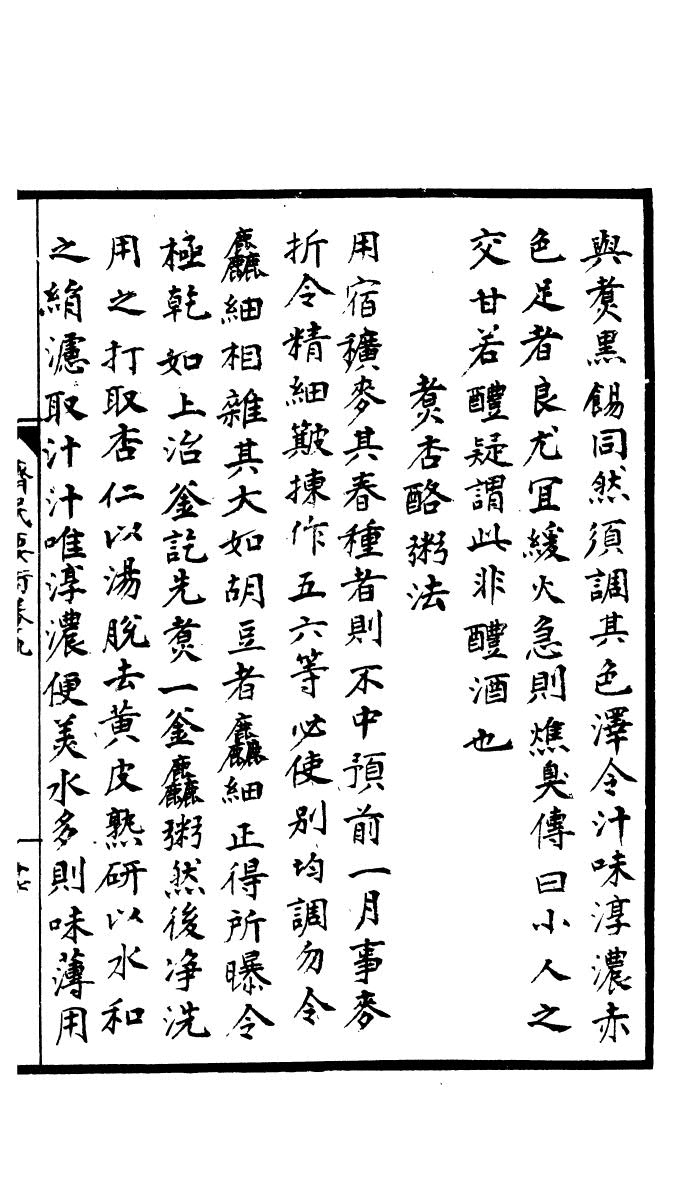 與煑黒餳同然須調其色澤令汁味淳濃赤
色足者良尤宜緩火急則燋臭傳曰小人之
交甘若醴疑謂此非醴酒也
煑杏酪粥法
用宿穬麥其春種者則不中預前一月事麥
折令精細簸揀作五六等必使別均調勿令
麤細相雜其大如胡豆者麤細正得所曝令
極乾如上治釜訖先煑一釜麤粥然後净洗
用之打取杏仁以湯脫去黄皮熟研以水和
之絹濾取汁汁唯淳濃便美水多則味薄用
齊民要術卷九
十七